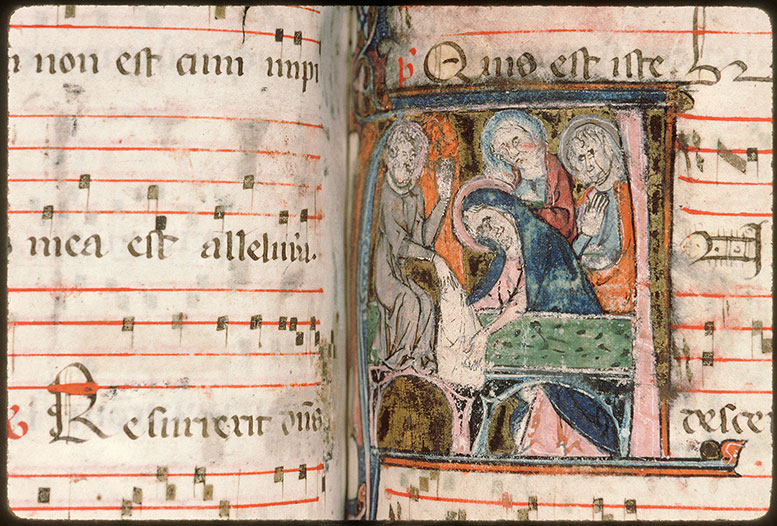 non est cum impi
mea est alleluia.
Resurrexit dns
p Quis est iste
desce